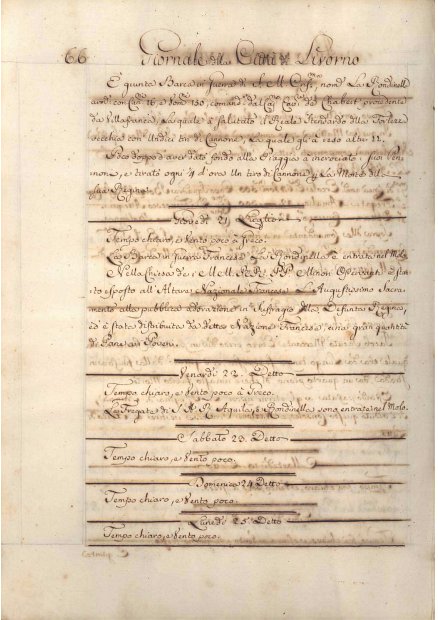 66 Giornale della Città di Livorno
È giunta Barca in guerra di S. M. Crist.ma nom.ta La Rondinella
arm.ta con Can.i 16, e Uom.i 130, comand.ta dal Cav.re de Chabert, proveniente
da Villafranca, La quale à salutato il Reale Stendardo della Fortezza
vecchia con Undici tiri di Cannone, La quale gli à reso altri 11.
Poco doppo d'aver dato fondo alla Spiaggia à incrociato i suoi Pen-
noni, e tirato ogni 1/4 d'ora Un tiro di Cannone p. La Morte della
sua Regina.
Giovedì 21 Luglio
Tempo chiaro, e Vento poco à greco.
La Barca in guerra Francese La Rondinella è entrata nel Molo.
Nella Chiesa de i M. M. R. R. P. P. Minori Osservanti è stato
esposto all'Altare Nazionale Francese L'Augustissimo Sacra-
mento alla pubblica adorazione in Suffragio della Defunta Regina,
ed è stata distribuita da detta Nazione Francese, una gran quantità
di Pane a i Poveri.
Venerdì 22. Detto
Tempo chiaro, e Vento poco à Greco.
Le Fregate di S. A. R. Aquila, e Rondinella sono entrate nel Molo.
Sabbato 23. Detto
Tempo chiaro, e Vento poco.
Domenica 24 Detto
Tempo chiaro, e Vento poco.
Lunedì 25. Detto
Tempo chiaro, e Vento poco.